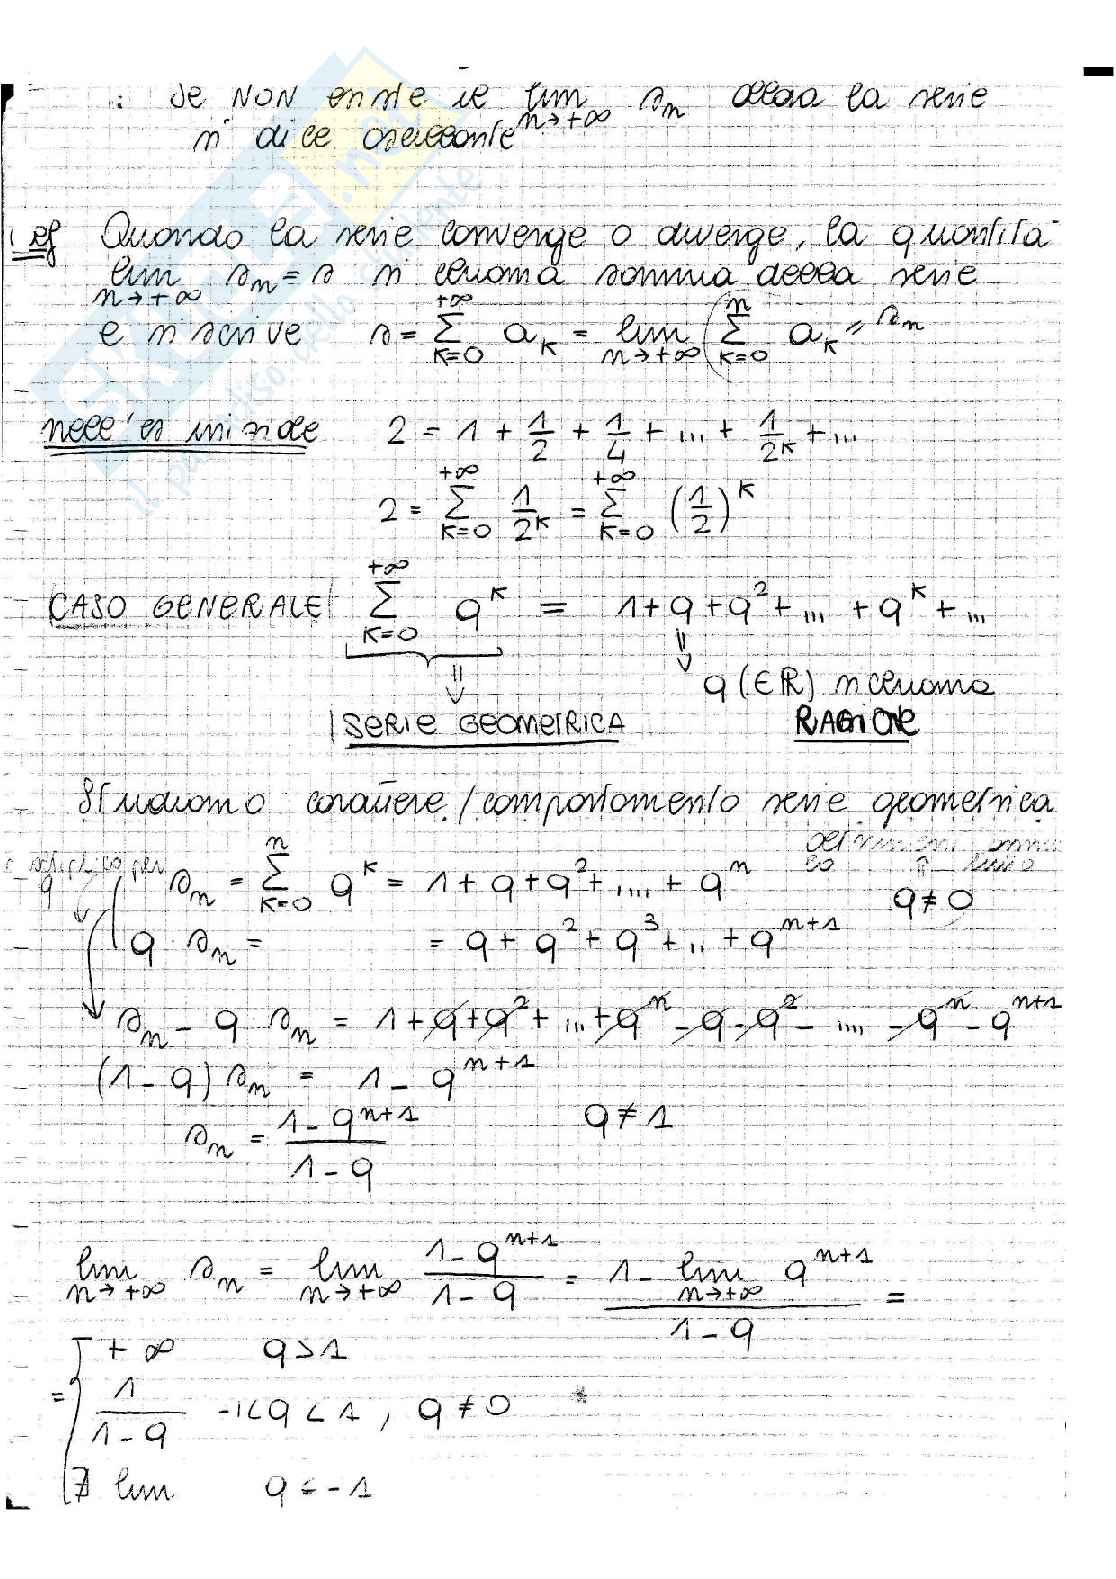 Se NON esiste il lim n→+∞ sn allora la serie
si dice oscillante
Def Quando la serie converge o diverge, la quantità
lim n→+∞ sn = s si chiama somma della serie
e si scrive s = Σ k=0 +∞ ak = lim n→+∞ (Σ k=0 n ak = sn
nell'es iniziale 2 = 1 + 1/2 + 1/4 + ... + 1/2^k + ...
2 = Σ k=0 +∞ 1/2^k = Σ k=0 +∞ (1/2)^k
CASO GENERALE Σ k=0 +∞ q^k = 1 + q + q^2 + ... + q^k + ...
q (∈ℝ) si chiama
SERIE GEOMETRICA RAGIONE
Studiamo carattere/comportamento serie geometrica
per q
sn = Σ k=0 n q^k = 1 + q + q^2 + .... + q^n
q ≠ 0
q sn = = q + q^2 + q^3 + .. + q^n+1
sn - q sn = 1 + q + q^2 + ... + q^n - q - q^2 - .... - q^n - q^n+1
(1 - q) sn = 1 - q^n+1
sn = (1 - q^n+1)/(1 - q) q ≠ 1
lim n→+∞ sn = lim n→+∞ (1 - q^n+1)/(1 - q) = (1 - lim n→+∞ q^n+1)/(1 - q) =
= { +∞ q > 1
1/(1 - q) -1 < q < 1, q ≠ 0
∄ lim q ≤ -1